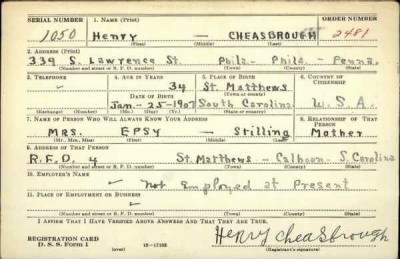 SERIAL NUMBER 1. NAME (Print) ORDER NUMBER
1050 Henry — CHEASBROUGH 2481
(First) (Middle) (Last)
2. ADDRESS (Print)
339 S. Lawrence St. Phila- Phila- Penna.
(Number and street or R. F. D. number) (Town) (County) (State)
3. TELEPHONE 4. AGE IN YEARS 5. PLACE OF BIRTH 6. COUNTRY OF CITIZENSHIP
34 St. Matthews
DATE OF BIRTH (Town or county)
Jan- 25-1907 South Carolina U.S.A.
(Exchange) (Number) (Mo.) (Day) (Yr.) (State or country)
7. NAME OF PERSON WHO WILL ALWAYS KNOW YOUR ADDRESS 8. RELATIONSHIP OF THAT PERSON
MRS. EPSY — Stilling Mother
(Mr., Mrs., Miss) (First) (Middle) (Last)
9. ADDRESS OF THAT PERSON
R.F.D. 4 St. Matthews - Calhoun- S. Carolina
(Number and street or R. F. D. number) (Town) (County) (State)
10. EMPLOYER'S NAME
Not Employed at Present
11. PLACE OF EMPLOYMENT OR BUSINESS
(Number and street or R. F. D. number) (Town) (County) (State)
I AFFIRM THAT I HAVE VERIFIED ABOVE ANSWERS AND THAT THEY ARE TRUE.
REGISTRATION CARD
D. S. S. Form 1 (over) Henry Cheasbrough
(Registrant's signature)